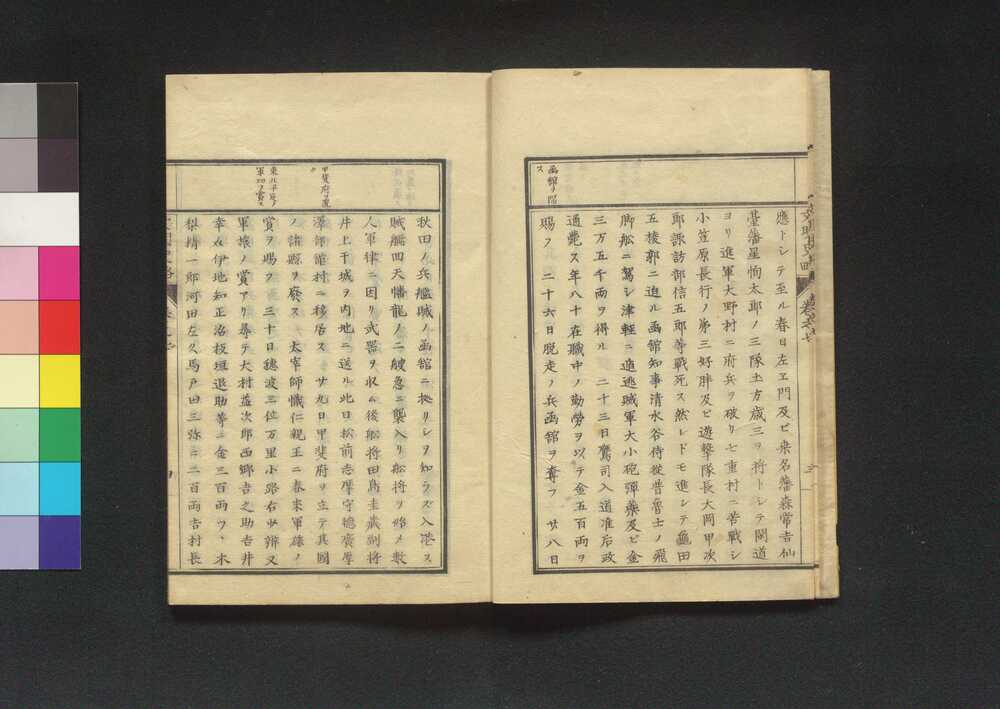 應トシテ至ル春日左ヱ門及ビ桒名藩森常吉仙
臺藩星恂太郎ノ三隊土方歳三ヲ將トシテ間道
ヨリ進軍大野村ニ府兵ヲ破リ七重村ニ苦戰シ
小笠原長行ノ弟三好胖及ビ遊撃隊長大岡甲次
郎諏訪部信五郎等戰死ス然レドモ進シテ龜田
五稜郭ニ迫ル函舘知事清水谷侍從普魯士ノ飛
脚舩ニ駕シ津輕ニ遁逃賊軍大小砲彈藥及ビ金
三万五千兩ヲ得ル 二十三日鷹司入道准后政
通薨ス年八十在職中ノ勤勞ヲ以テ金五百兩ヲ
賜フ 二十六日脱走ノ兵函舘ヲ奪フ 廿八日
函舘ヲ陷
ス
秋田ノ兵艦賊ノ函舘ニ拠リシヲ知ラズ入港ス
賊艦回天幡龍ノ二艘急ニ襲入リ舩將ヲ始メ數
人軍律ニ因リ武器ヲ収ム後舩將田島圭蔵副將
井上千城ヲ内地ニ送ル此日松前志摩守徳廣厚
澤部舘村ニ移居ス 廿九日甲斐府ヲ立テ其國
ノ諸縣ヲ廢ス 太宰帥熾仁親王ニ春来軍旅ノ
賞ヲ賜フ三十日穂波三位万里小路右少辨又
軍旅ノ賞アリ尋テ大村益次郎西郷吉之助吉井
幸介伊地知正治板垣退助等ニ金三百兩ヅヽ木
梨精一郎河田左久馬戸田三弥ニ二百兩吉村長
甲斐府ヲ置
ク
東北平定ノ
軍功ヲ賞ス